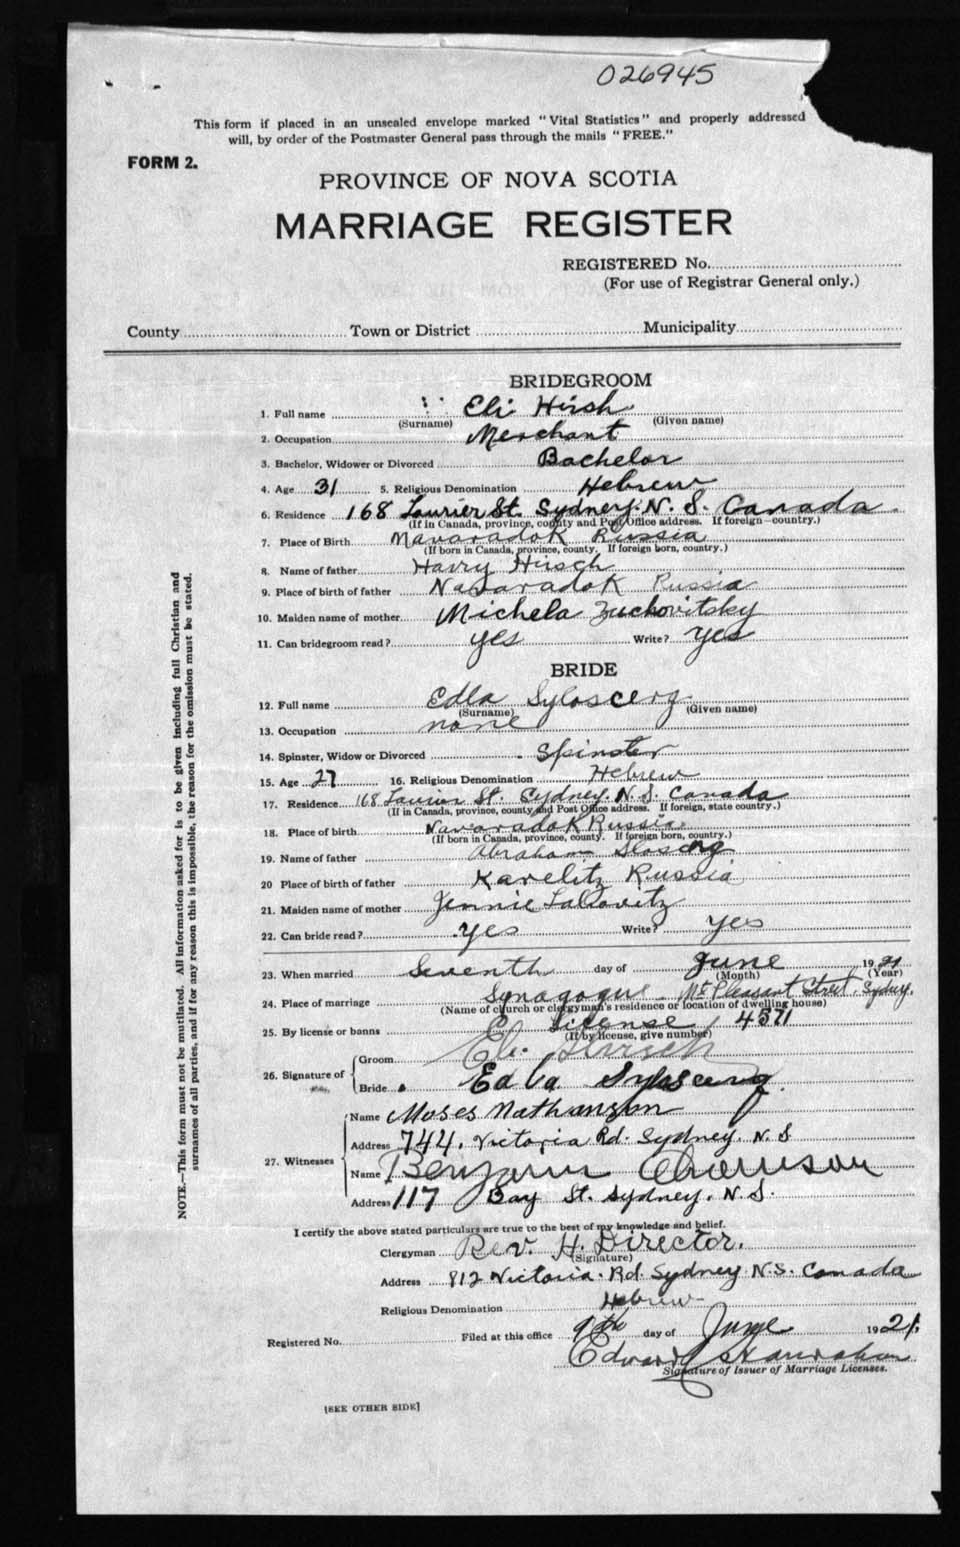 026945
This form if placed in an unsealed envelope marked "Vital Statistics" and properly addressed
will, by order of the Postmaster General pass through the mails "FREE."
FORM 2.
PROVINCE OF NOVA SCOTIA
MARRIAGE REGISTER
REGISTERED No.
(For use of Registrar General only.)
County Town or District Municipality
BRIDEGROOM
1. Full name Eli Hirsh
(Surname) (Given name)
2. Occupation Merchant
3. Bachelor, Widower or Divorced Bachelor
4. Age 31 5. Religious Denomination Hebrew
6. Residence 168 Laurier St. Sydney. N. S. Canada
(If in Canada, province, county and Post Office address. If foreign—country.)
7. Place of Birth Navaradok Russia
(If born in Canada, province, county. If foreign born, country.)
8. Name of father Harry Hirsch
9. Place of birth of father Navaradok Russia
10. Maiden name of mother Michela Zuchovitsky
11. Can bridegroom read? yes Write? yes
BRIDE
12. Full name Edla
(Surname) (Given name)
13. Occupation none
14. Spinster, Widow or Divorced Spinster
15. Age 27 16. Religious Denomination Hebrew
17. Residence 168 Laurier St. Sydney. N. S. Canada
(If in Canada, province, county and Post Office address. If foreign, state country.)
18. Place of birth Navaradok Russia
(If born in Canada, province, county. If foreign born, country.)
19. Name of father Abraham
20 Place of birth of father Karelitz Russia
21. Maiden name of mother Jennie
22. Can bride read? yes Write? yes
23. When married Seventh day of June 1921
(Month) (Year)
24. Place of marriage Synagogue Mt Pleasant Street, Sydney.
(Name of church or clergyman's residence or location of dwelling house)
25. By license or banns License 4571
(If by license, give number)
26. Signature of
Groom Eli Hirsch
Bride Edla
27. Witnesses
Name Moses Nathanson
Address 744, Victoria Rd. Sydney. N. S
Name Benjamin
Address 117 Bay St. Sydney. N. S.
I certify the above stated particulars are true to the best of my knowledge and belief.
Clergyman Rev. H. Director.
(Signature)
Address 812 Victoria. Rd. Sydney N.S. Canada
Religious Denomination Hebrew
Registered No. Filed at this office 9th day of June 1921.
Edward Hanrahan
Signature of Issuer of Marriage Licenses.
[SEE OTHER SIDE]
NOTE.—This form must not be mutilated. All information asked for is to be given including full Christian and
surnames of all parties, and if for any reason this is impossible, the reason for the omission must be stated.